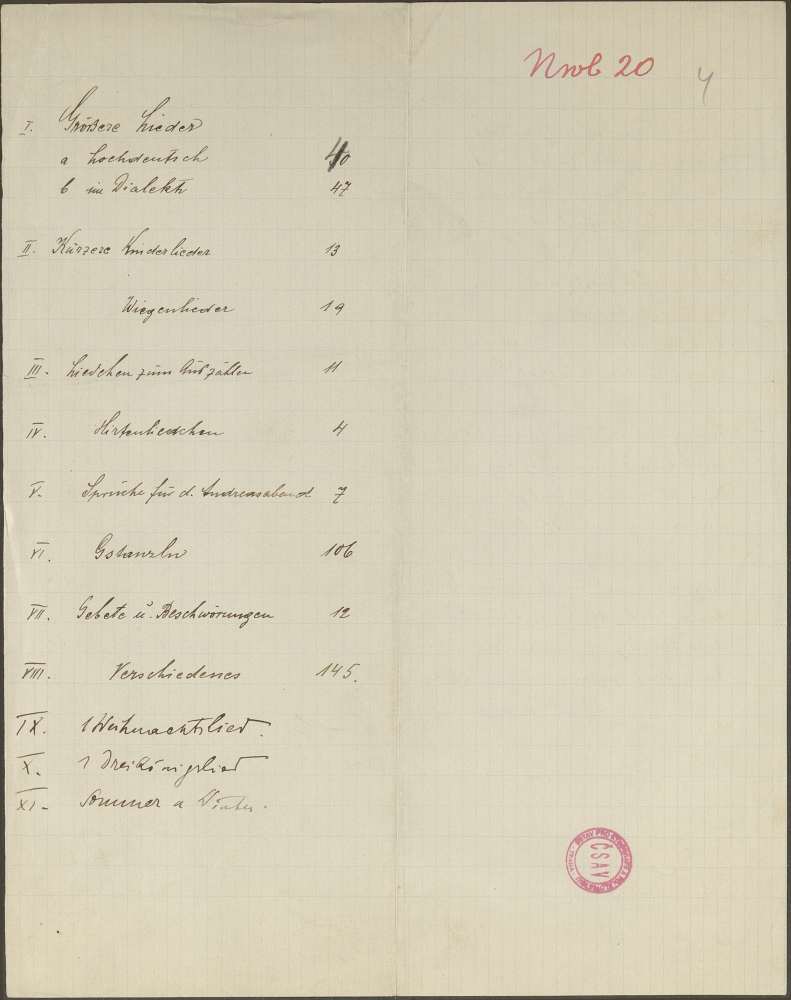 Nwb 20
4
I. Größere Lieder
a hochdeutsch 40
b im Dialekte 47
II. Kürzere Kinderlieder 13
Wiegenlieder 19
III. Liedchen zum Auszählen 11
IV. Hirtenliedchen 4
V. Sprüche für d. Andreasabend 7
VI. Gstanzln 106
VII. Gebete u. Beschwörungen 12
VIII. Verschiedenes 145.
IX. 1 Weihnachtslied.
X. 1 Dreikönigslied
XI. Sommer a Winter.
ČSAV